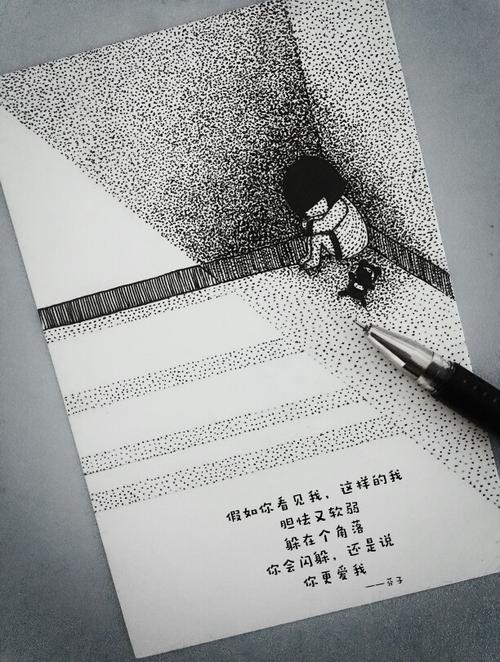 假如你看见我，这样的我
胆怯又软弱
躲在个角落
你会闪躲，还是说
你更爱我
——芬子